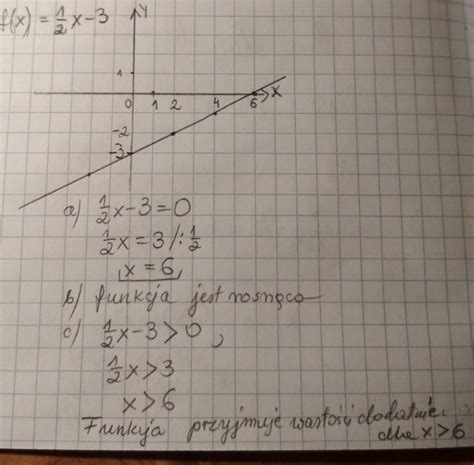 f(x) = ½x-3
Y
1
0 1 2 4 6 X
-2
-3
a) ½x-3=0
½x=3 /:½
x=6
b) funkcja jest rosnąca
c) ½x-3>0,
½x>3
x>6
Funkcja przyjmuje wartości dodatnie
dla x>6